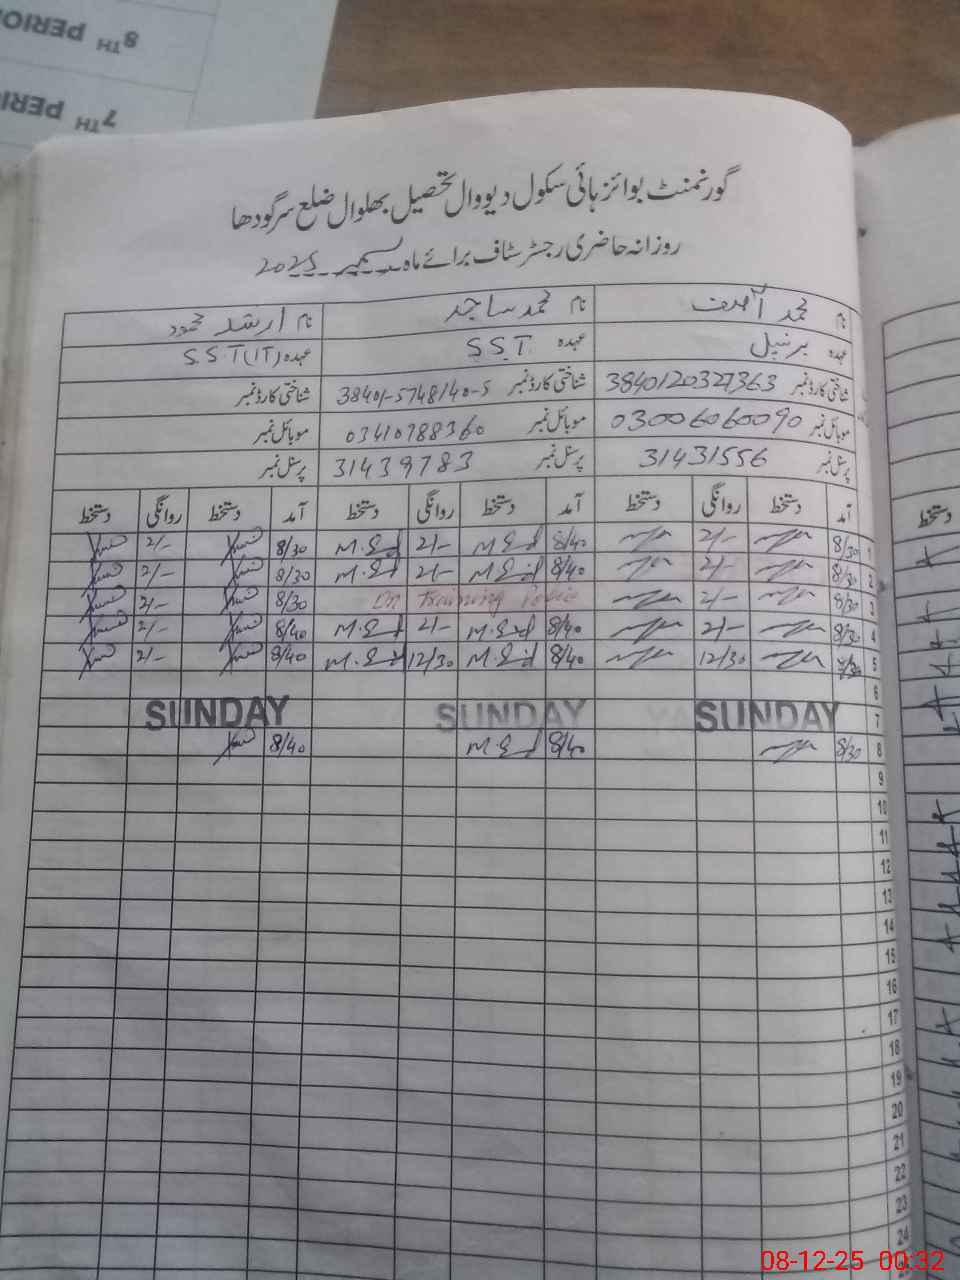 8TH PERIOD
7TH PERI
گورنمنٹ بوائز ہائی سکول دیووال تحصیل بھلوال ضلع سرگودھا
روزانہ حاضری رجسٹر سٹاف برائے ماہ دسمبر 2025
نام محمد آصف نام محمد ساجد نام ارشد محمود
عہدہ پرنسپل عہدہ S.S.T عہدہ S.S.T(IT)
شناختی کارڈ نمبر 3840120327363 شناختی کارڈ نمبر 38401-5748140-5 شناختی کارڈ نمبر
موبائل نمبر 03006060090 موبائل نمبر 03410788360 موبائل نمبر
پرسنل نمبر 31431556 پرسنل نمبر 31439783 پرسنل نمبر
آمد دستخط روانگی دستخط آمد دستخط روانگی دستخط آمد دستخط روانگی دستخط
دستخط
1 8/30 2/- 8/40 2/- 8/30 2/-
2 8/30 2/- 8/40 2/- 8/30 2/-
3 8/30 2/- On Training 8/30 2/-
4 8/30 2/- 8/40 2/- 8/40 2/-
5 12/30 8/40 12/30 8/40 2/-
6
7 SUNDAY SUNDAY SUNDAY
8 8/30 8/40 8/40
9
10
11
12
13
14
15
16
17
18
19
20
21
22
23
24
08-12-25 00:32